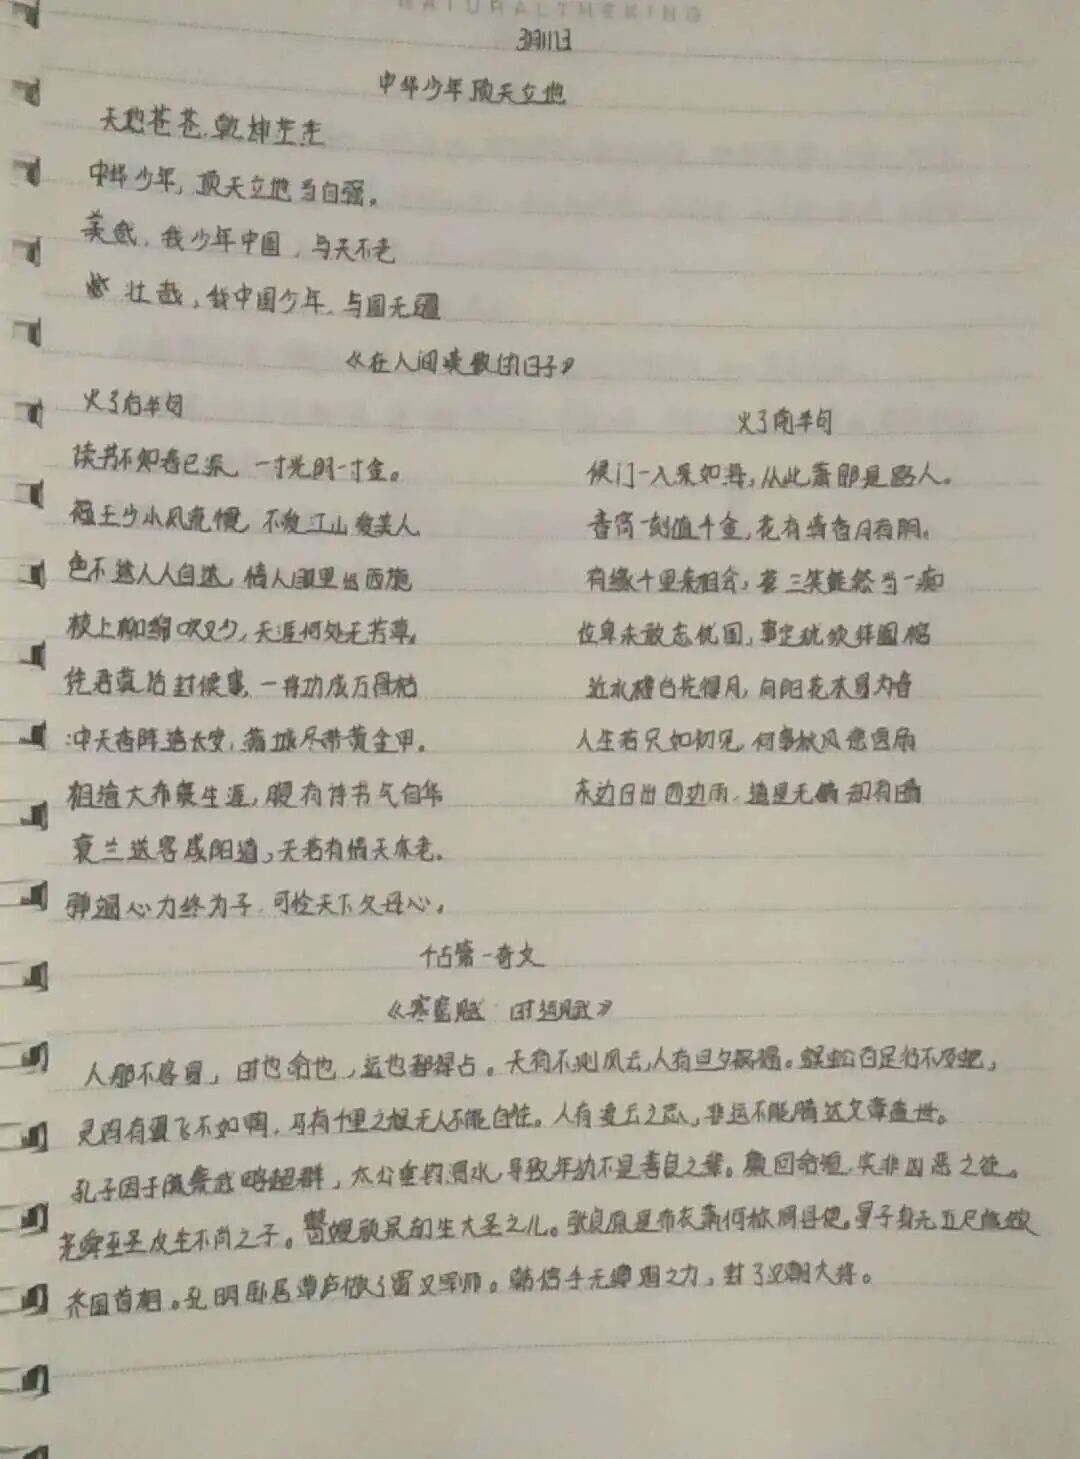 NATURALTHEKING
3月11日
中华少年顶天立地
天地苍苍,乾坤茫茫
中华少年,顶天立地当自强。
美哉,我少年中国,与天不老
壮哉,我中国少年,与国无疆
《在人间凑数的日子》
火了后半句
火了前半句
读书不知春已深,一寸光阴一寸金。
侯门一入深如海,从此萧郎是路人。
福王少小风流惯,不爱江山爱美人
春宵一刻值千金,花有清香月有阴。
色不迷人人自迷,情人眼里出西施
有缘千里来相会,三笑徒然当一痴
枝上柳绵吹又少,天涯何处无芳草。
位卑未敢忘忧国,事定犹须待阖棺
凭君莫话封侯事,一将功成万骨枯
近水楼台先得月,向阳花木易为春
冲天香阵透长安,满城尽带黄金甲。
人生若只如初见,何事秋风悲画扇
粗缯大布裹生涯,腹有诗书气自华
东边日出西边雨,道是无晴却有晴
衰兰送客咸阳道,天若有情天亦老。
殚竭心力终为子,可怜天下父母心。
千古第一奇文
《寒窑赋 时运赋》
天有不测风云,人有旦夕祸福。蜈蚣百足行不及蛇,
灵鸡有翼飞不如鸦,马有千里之程无人不能自往。人有凌云之志,非运不能腾达文章盖世。
孔子因于陈蔡武略超群,太公垂钓渭水,导致年幼不是善良之辈。颜回命短,实非凶恶之徒。
尧舜至圣反生不肖之子。瞽嫂顽呆却生大圣之儿。张良原是布衣萧何称阿县吏。晏子身无五尺做
齐国首相。孔明卧居草庐做了蜀汉军师。韩信手无缚鸡之力,封了汉朝大将。